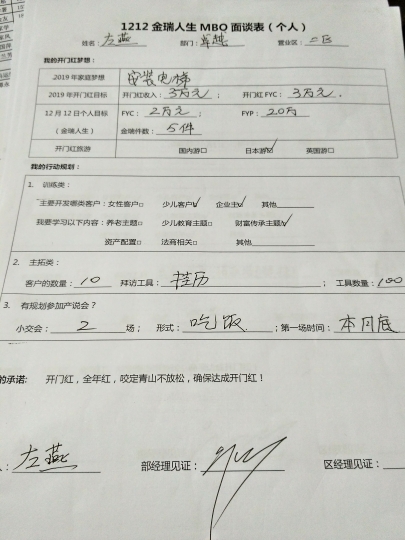 1212 金瑞人生 MBO 面谈表（个人）
姓名：左燕 部门：卓越 营业区：二区
我的开门红梦想：
2019 年家庭梦想 安装电梯
2019 年开门红目标 开门红收入：3万元； 开门红 FYC：3万元.
12 月 12 日个人目标 FYC：2万元； FYP：20万
（金瑞人生） 金瑞件数：5件
开门红旅游 国内游□ 日本游☑ 英国游□
我的行动规划：
1. 训练类：
主要开发哪类客户：女性客户□ 少儿客户☑ 企业主☑ 其他
我要学习以下内容：养老主题□ 少儿教育主题□ 财富传承主题☑
资产配置□ 法商相关□ 其他
2. 主拓类：
客户的数量：10 拜访工具：挂历； 工具数量：100
3. 有规划参加产说会？
小交会：2场； 形式：吃饭；第一场时间：本月底
的承诺： 开门红，全年红，咬定青山不放松，确保达成开门红！
：左燕 部经理见证： 区经理见证：